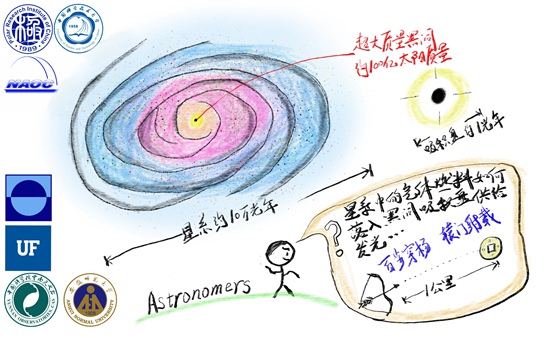 Polar Research Institute of China
极
1989
1958
NAOC
超大质量黑洞
约100亿太阳质量
吸积盘约1光年
星系约10万光年
星系中的气体燃料如何
落入黑洞吸积盘供给
发光...
?
百步穿杨 辕门射戟
1公里
Astronomers
UF
YUNNAN OBSERVATORIES, CAS
ANHUI NORMAL UNIVERSITY
1928